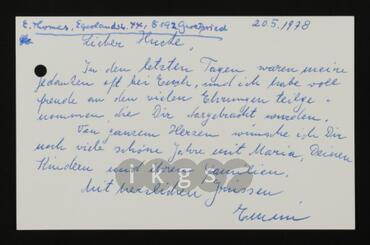 E. Thomas, Egerlandstr. 44, 8192 Geretsried
20.5.1978
Lieber Hische,
In den letzten Tagen waren meine
Gedanken oft bei Euch, und ich habe voll
Freude an den vielen Ehrungen teilge-
nommen, die Dir dargebracht wurden.
Von ganzem Herzen wünsche ich Dir
noch viele schöne Jahre mit Maria, Deinen
Kindern und ihren Familien.
Mit herzlichen Grüssen
ikgs